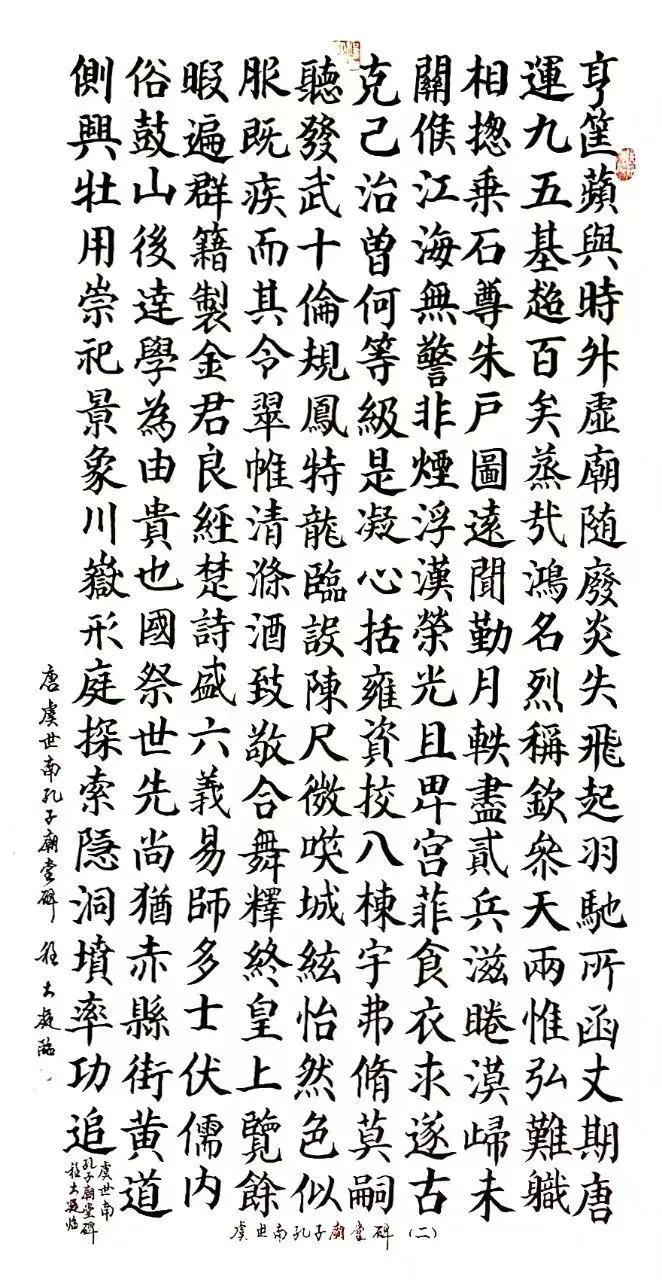 亨筐蘋與時外虚廟随廢炎失飛起羽馳所函丈期唐
運九五基趍百矣蒸㢤鴻名烈稱欽衆天兩惟弘難職
相揔乗石尊朱戶圖遠聞勤月軼盡貳兵滋睠漠歸未
關倏江海無警非煙浮漢榮光且卑宫菲食衣求遂古
克己治曽何等級是凝心括雍資挍八棟宇弗脩莫嗣
聽發武十倫規鳳特龍臨設陳尺微唉城絃怡然色似
服既疾而其令翠帷清滌酒致敬合舞釋終皇上覽餘
暇遍群籍製金君良經楚詩盛六義易師多士伏儒内
俗鼓山後逹學為由貴也國祭世先尚猶赤縣街黄道
側興壮用崇祀景象川嶽形庭探索隠洞墳率功追
虞世南
孔子廟堂碑
唐虞世南孔子廟堂碑
虞世南孔子廟堂碑（二）